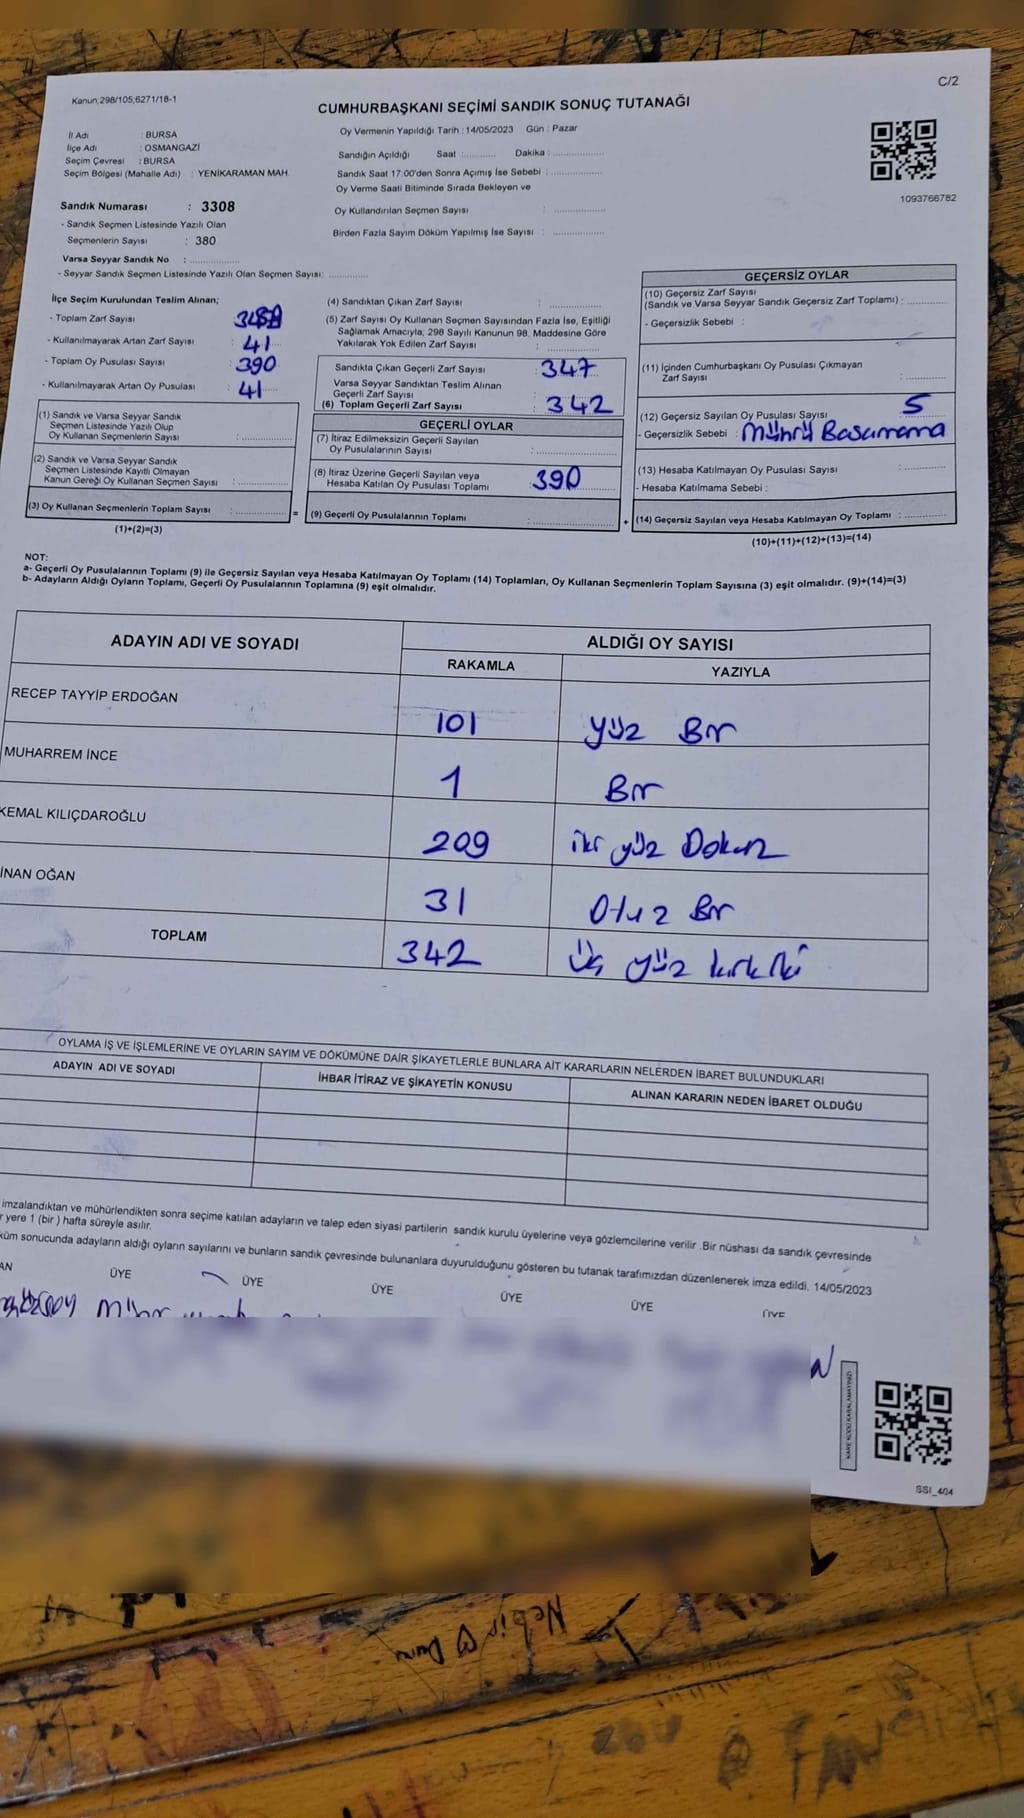 C/2
Kanun;298/105,6271/18-1
CUMHURBAŞKANI SEÇİMİ SANDIK SONUÇ TUTANAĞI
Oy Vermenin Yapıldığı Tarih : 14/05/2023 Gün : Pazar
İl Adı : BURSA
İlçe Adı : OSMANGAZİ
Seçim Çevresi : BURSA
Seçim Bölgesi (Mahalle Adı) : YENİKARAMAN MAH.
Sandığın Açıldığı Saat :........... Dakika : ................
Sandık Saat 17:00'den Sonra Açımış İse Sebebi : ................
Oy Verme Saati Bitiminde Sırada Bekleyen ve
Oy Kullandırılan Seçmen Sayısı : ................
Birden Fazla Sayım Döküm Yapılmış İse Sayısı : ................
1093766782
Sandık Numarası : 3308
- Sandık Seçmen Listesinde Yazılı Olan
Seçmenlerin Sayısı : 380
Varsa Seyyar Sandık No : ................
- Seyyar Sandık Seçmen Listesinde Yazılı Olan Seçmen Sayısı: ............
İlçe Seçim Kurulundan Teslim Alınan;
- Toplam Zarf Sayısı :
- Kullanılmayarak Artan Zarf Sayısı : 41
- Toplam Oy Pusulası Sayısı : 390
- Kullanılmayarak Artan Oy Pusulası : 41
(1) Sandık ve Varsa Seyyar Sandık
Seçmen Listesinde Yazılı Olup
Oy Kullanan Seçmenlerin Sayısı : ................
(2) Sandık ve Varsa Seyyar Sandık
Seçmen Listesinde Kayıtlı Olmayan
Kanun Gereği Oy Kullanan Seçmen Sayısı : ................
(3) Oy Kullanan Seçmenlerin Toplam Sayısı : ................ =
(1)+(2)=(3)
(4) Sandıktan Çıkan Zarf Sayısı : ................
(5) Zarf Sayısı Oy Kullanan Seçmen Sayısından Fazla İse, Eşitliği
Sağlamak Amacıyla; 298 Sayılı Kanunun 98. Maddesine Göre
Yakılarak Yok Edilen Zarf Sayısı : ................
Sandıkta Çıkan Geçerli Zarf Sayısı : 347
Varsa Seyyar Sandıktan Teslim Alınan
Geçerli Zarf Sayısı :
(6) Toplam Geçerli Zarf Sayısı : 342
GEÇERLİ OYLAR
(7) İtiraz Edilmeksizin Geçerli Sayılan
Oy Pusulalarının Sayısı : ................
(8) İtiraz Üzerine Geçerli Sayılan veya
Hesaba Katılan Oy Pusulası Toplamı : 390
(9) Geçerli Oy Pusulalarının Toplamı : ................ +
GEÇERSİZ OYLAR
(10) Geçersiz Zarf Sayısı
(Sandık ve Varsa Seyyar Sandık Geçersiz Zarf Toplamı) : ............
- Geçersizlik Sebebi :
(11) İçinden Cumhurbaşkanı Oy Pusulası Çıkmayan
Zarf Sayısı : ............
(12) Geçersiz Sayılan Oy Pusulası Sayısı 5
- Geçersizlik Sebebi : Mührü Basamama
(13) Hesaba Katılmayan Oy Pusulası Sayısı : ............
- Hesaba Katılmama Sebebi :
(14) Geçersiz Sayılan veya Hesaba Katılmayan Oy Toplamı : ............
(10)+(11)+(12)+(13)=(14)
NOT:
a- Geçerli Oy Pusulalarının Toplamı (9) ile Geçersiz Sayılan veya Hesaba Katılmayan Oy Toplamı (14) Toplamları, Oy Kullanan Seçmenlerin Toplam Sayısına (3) eşit olmalıdır. (9)+(14)=(3)
b- Adayların Aldığı Oyların Toplamı, Geçerli Oy Pusulalarının Toplamına (9) eşit olmalıdır.
ADAYIN ADI VE SOYADI ALDIĞI OY SAYISI
RAKAMLA YAZIYLA
RECEP TAYYİP ERDOĞAN 101 Yüz Bir
MUHARREM İNCE 1 Bir
KEMAL KILIÇDAROĞLU 209 iki yüz Dokuz
İNAN OĞAN 31 Otuz Bir
TOPLAM 342 Üç yüz kırk iki
OYLAMA İŞ VE İŞLEMLERİNE VE OYLARIN SAYIM VE DÖKÜMÜNE DAİR ŞİKAYETLERLE BUNLARA AİT KARARLARIN NELERDEN İBARET BULUNDUKLARI
ADAYIN ADI VE SOYADI İHBAR İTİRAZ VE ŞİKAYETİN KONUSU ALINAN KARARIN NEDEN İBARET OLDUĞU
imzalandıktan ve mühürlendikten sonra seçime katılan adayların ve talep eden siyasi partilerin sandık kurulu üyelerine veya gözlemcilerine verilir .Bir nüshası da sandık çevresinde
r yere 1 (bir ) hafta süreyle asılır.
küm sonucunda adayların aldığı oyların sayılarını ve bunların sandık çevresinde bulunanlara duyurulduğunu gösteren bu tutanak tarafımızdan düzenlenerek imza edildi. 14/05/2023
AN ÜYE ÜYE ÜYE ÜYE ÜYE ÜYE
KARE KODU KARALAMAYINIZ!
SSI_404